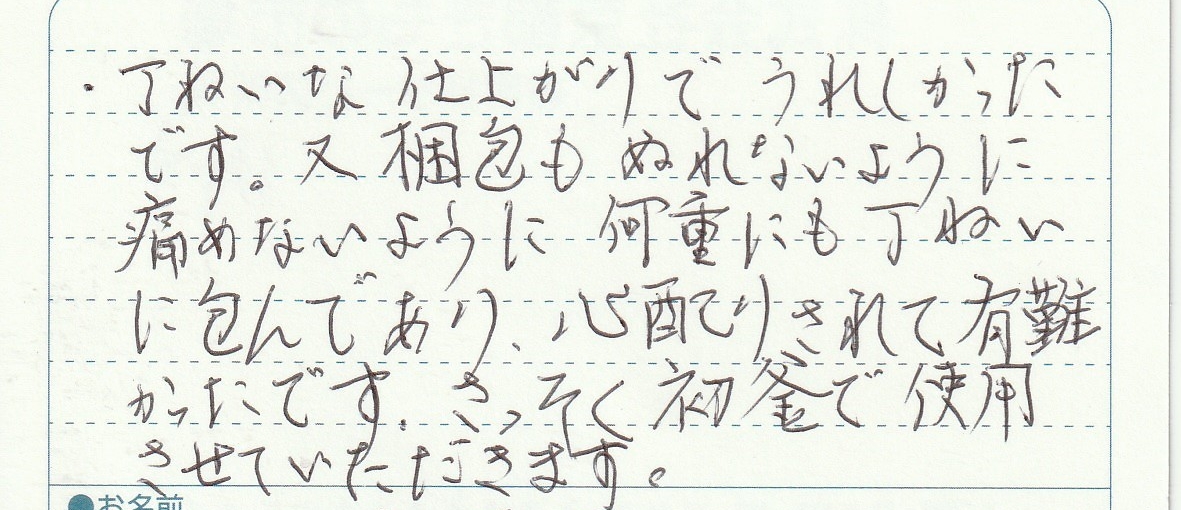 ・丁ねいな仕上がりでうれしかった
です。又梱包もぬれないように
痛めないように何重にも丁ねい
に包んであり、心配りされて有難
かったです。さっそく初釜で使用
させていただきます。
●お名前